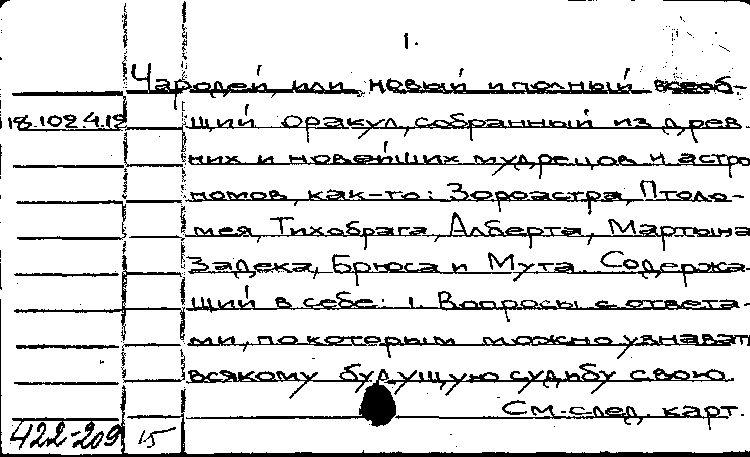 1.
Чародей, или новый и полный всеоб-
18.102.4.12 щий оракул, собранный из древ
них и новейших мудрецов и астро
номов, как-то: Зороастра, Птоло-
мея, Тихобрага, Алберта, Мартына
Задека, Брюса и Мута. Содержа-
щий в себе: 1. Вопросы с ответа-
ми, по которым можно узнават
всякому будущую судьбу свою
См. след. карт.
422-209 15